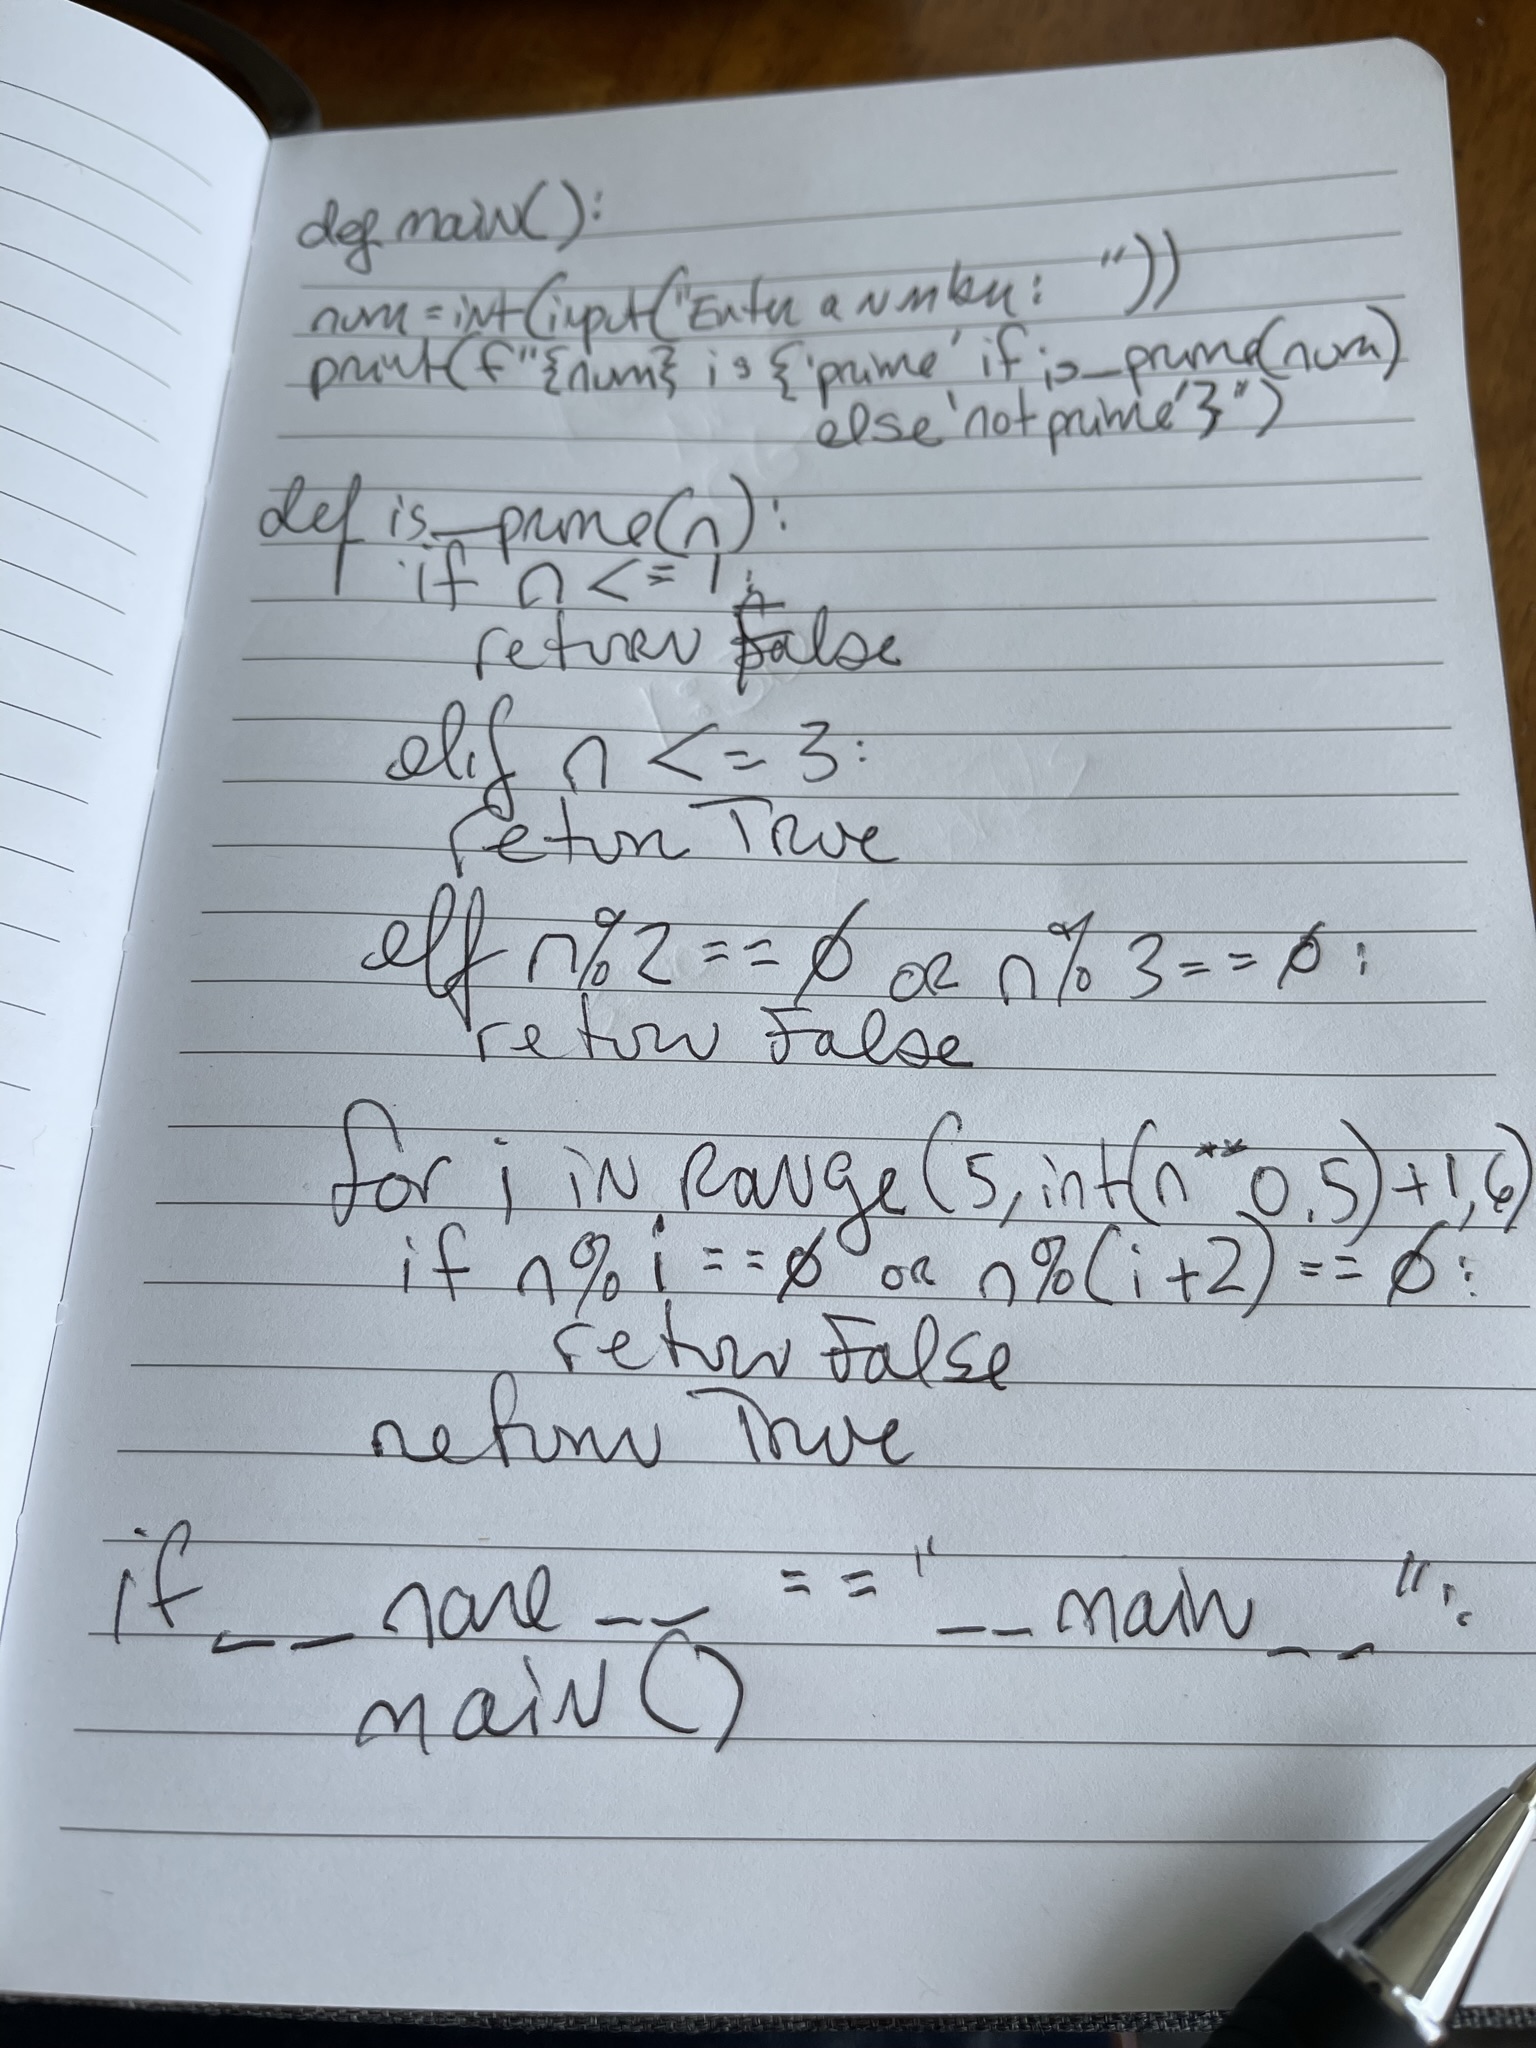 def main():
num = int(input("Enter a number: "))
print(f"{num} is {'prime' if is_prime(num)
else 'not prime'}")
def is_prime(n):
if n <= 1:
return False
elif n <= 3:
return True
elif n % 2 == 0 or n % 3 == 0:
return False
for i in range(5, int(n**0.5)+1, 6)
if n % i == 0 or n % (i+2) == 0:
return False
return True
if __name__ == "__main__":
main()